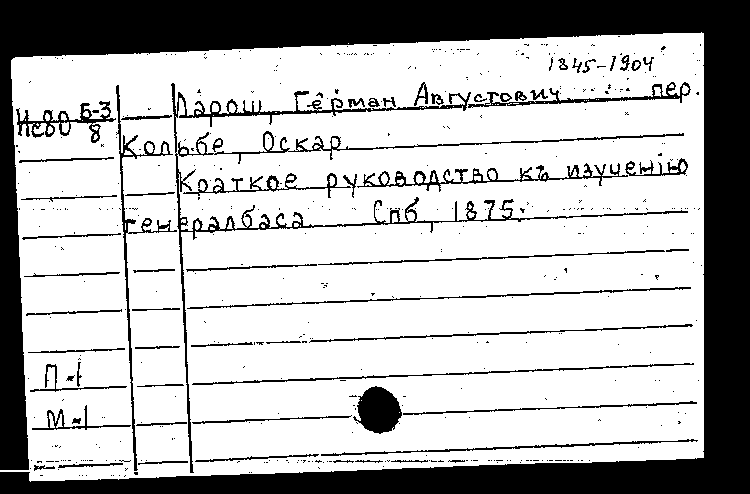 1845-1904
Б-3 Ларош, Герман Августович пер.
8
Кольбе, Оскар
Краткое руководство къ изученію
генералбаса Спб, 1875.
П-1
М-1